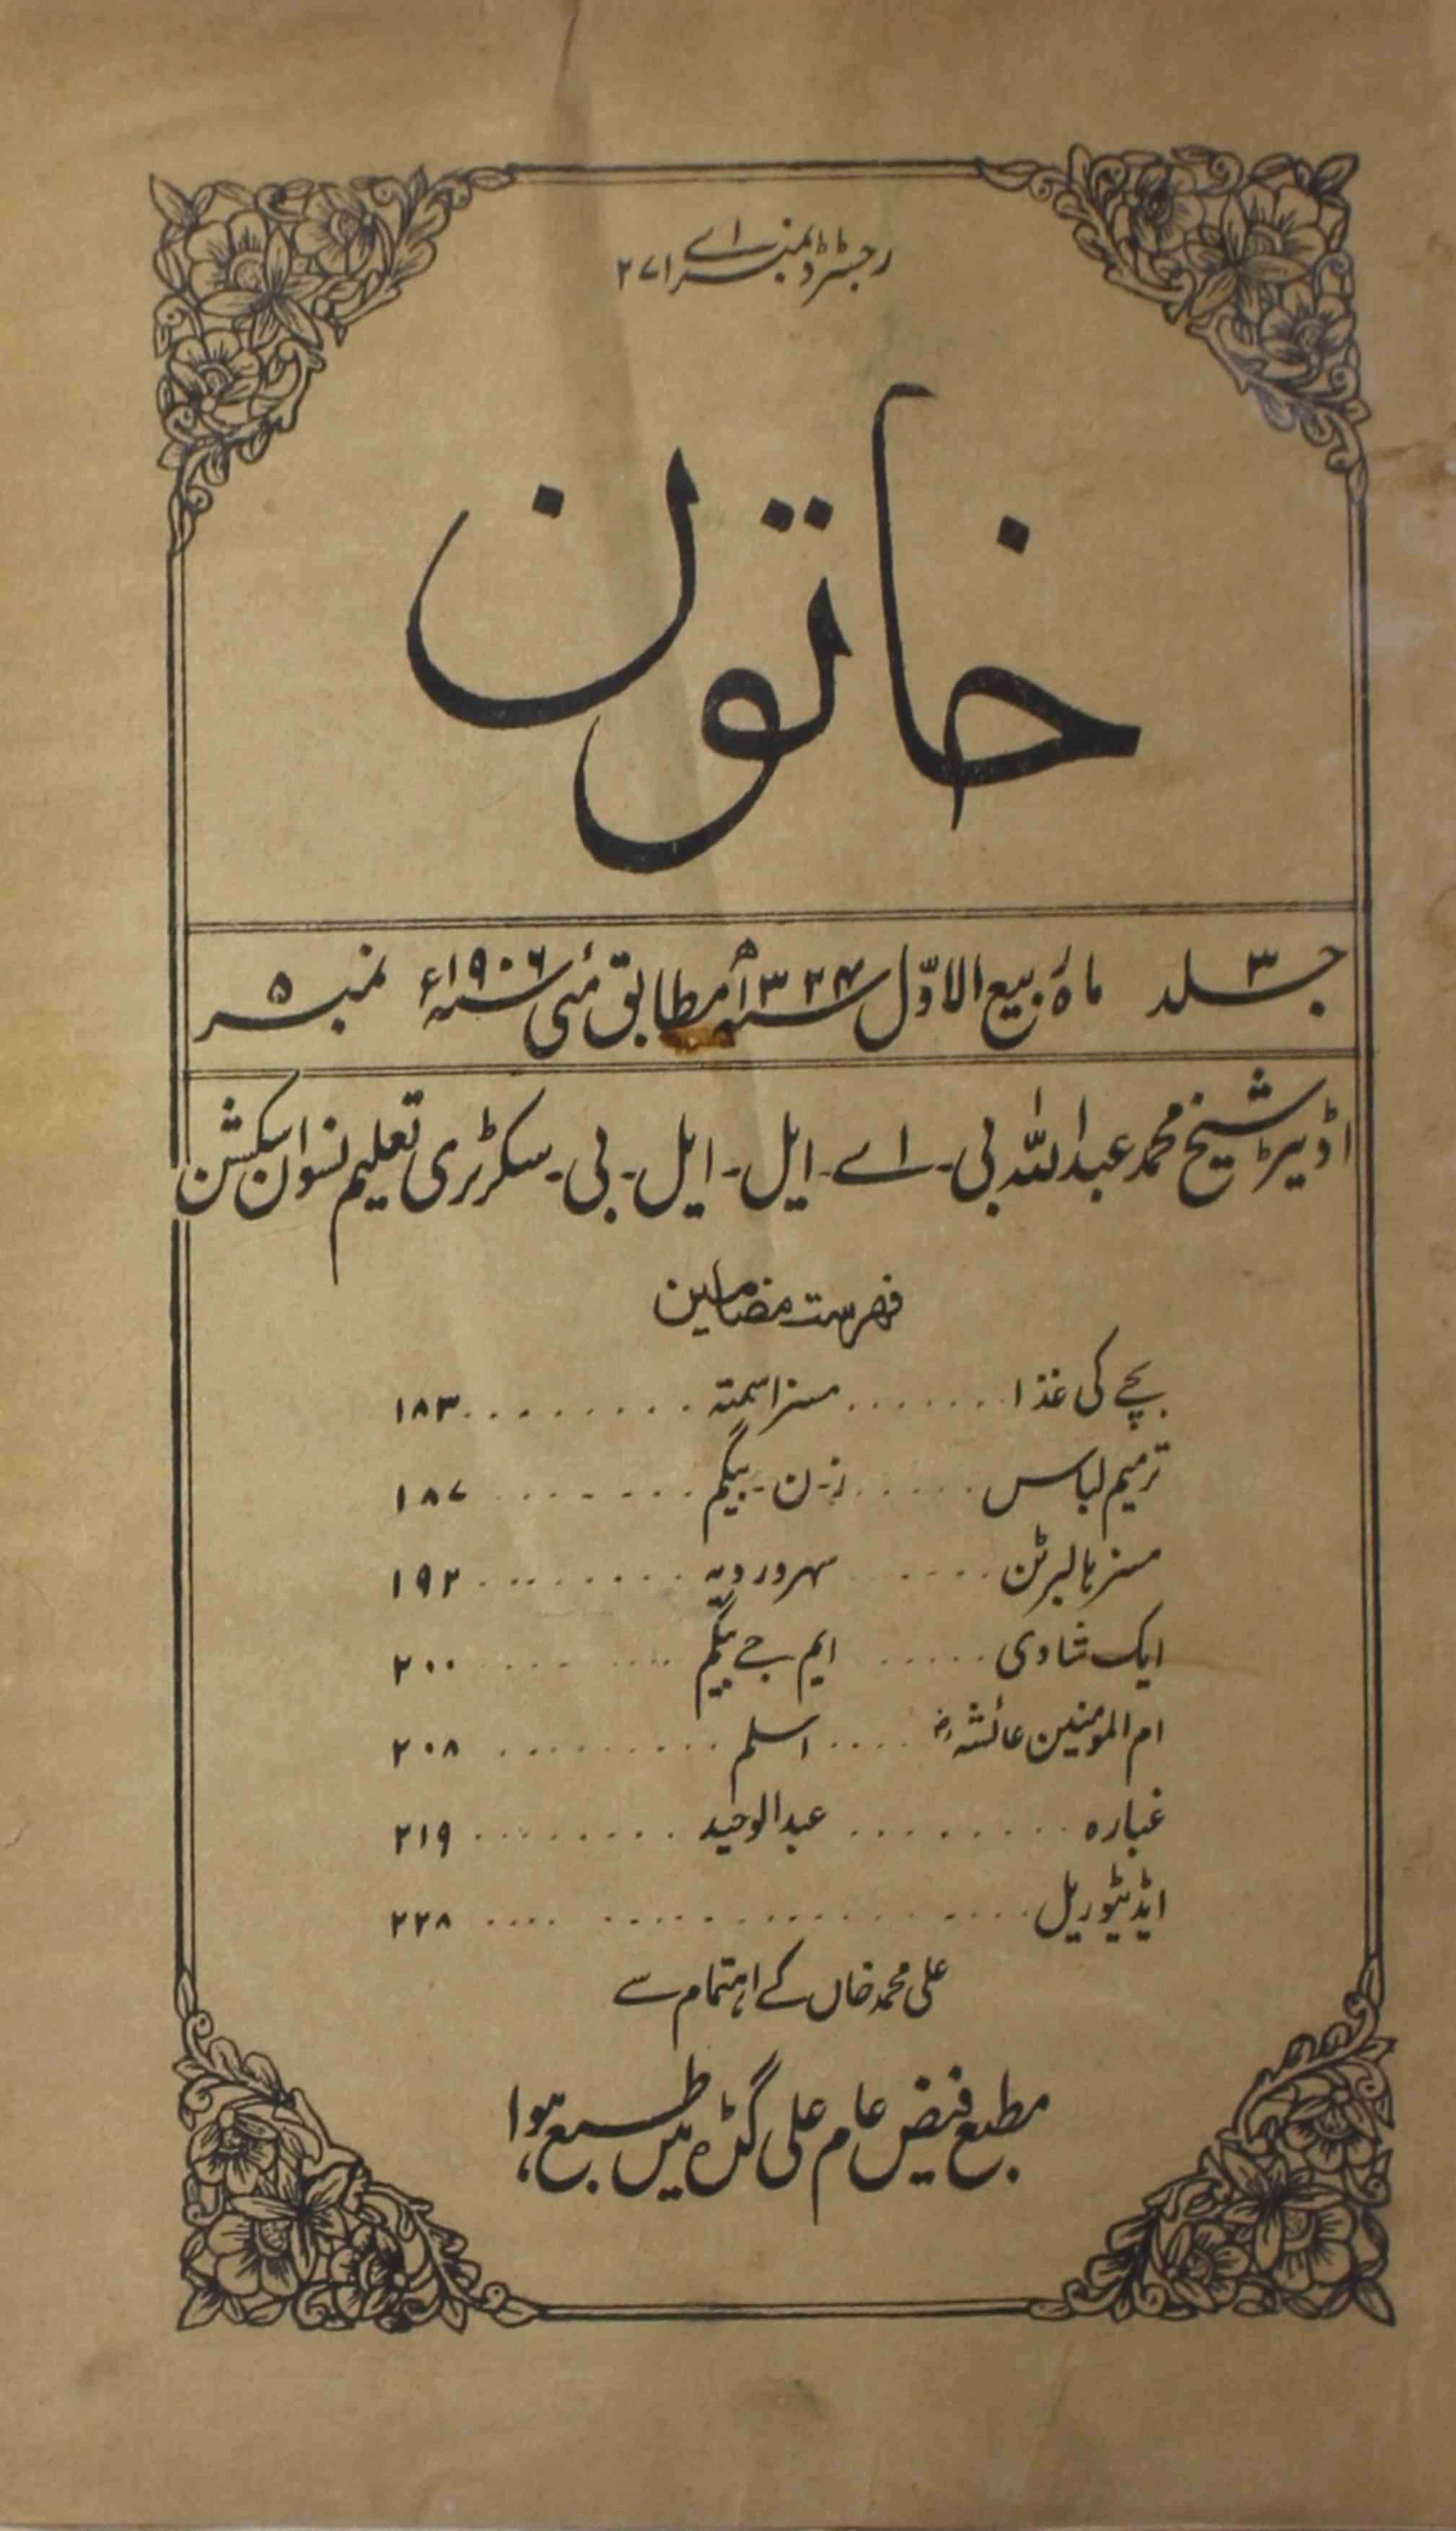 رجسٹرڈ نمبر اے ۲۷۱
خاتون
جلد ۳ ماہ ربیع الاوّل سنہ ۱۳۲۴ھ مطابق مئی سنہ ۱۹۰۶ء نمبر ۵
اڈیٹر شیخ محمد عبداللہ بی۔اے۔ایل۔ایل۔بی۔سکرٹری تعلیم نسواں سکشن
فہرست مضامین
بچے کی غذا ....... مسز اسمتہ ......... ۱۸۳
ترمیم لباس ...... ز۔ن۔بیگم ........ ۱۸۷
مسز ہالبرٹن ..... سہروردیہ ......... ۱۹۲
ایک شادی ..... ایم جے بیگم ........ ۲۰۰
ام المومنین عائشہ رض .... اسلم ......... ۲۰۸
غبارہ ......... عبدالوحید ........ ۲۱۹
ایڈیٹوریل ................ ۲۲۸
علی محمد خاں کے اہتمام سے
مطبع فیض عام علی گڑہ میں طبع ہوا